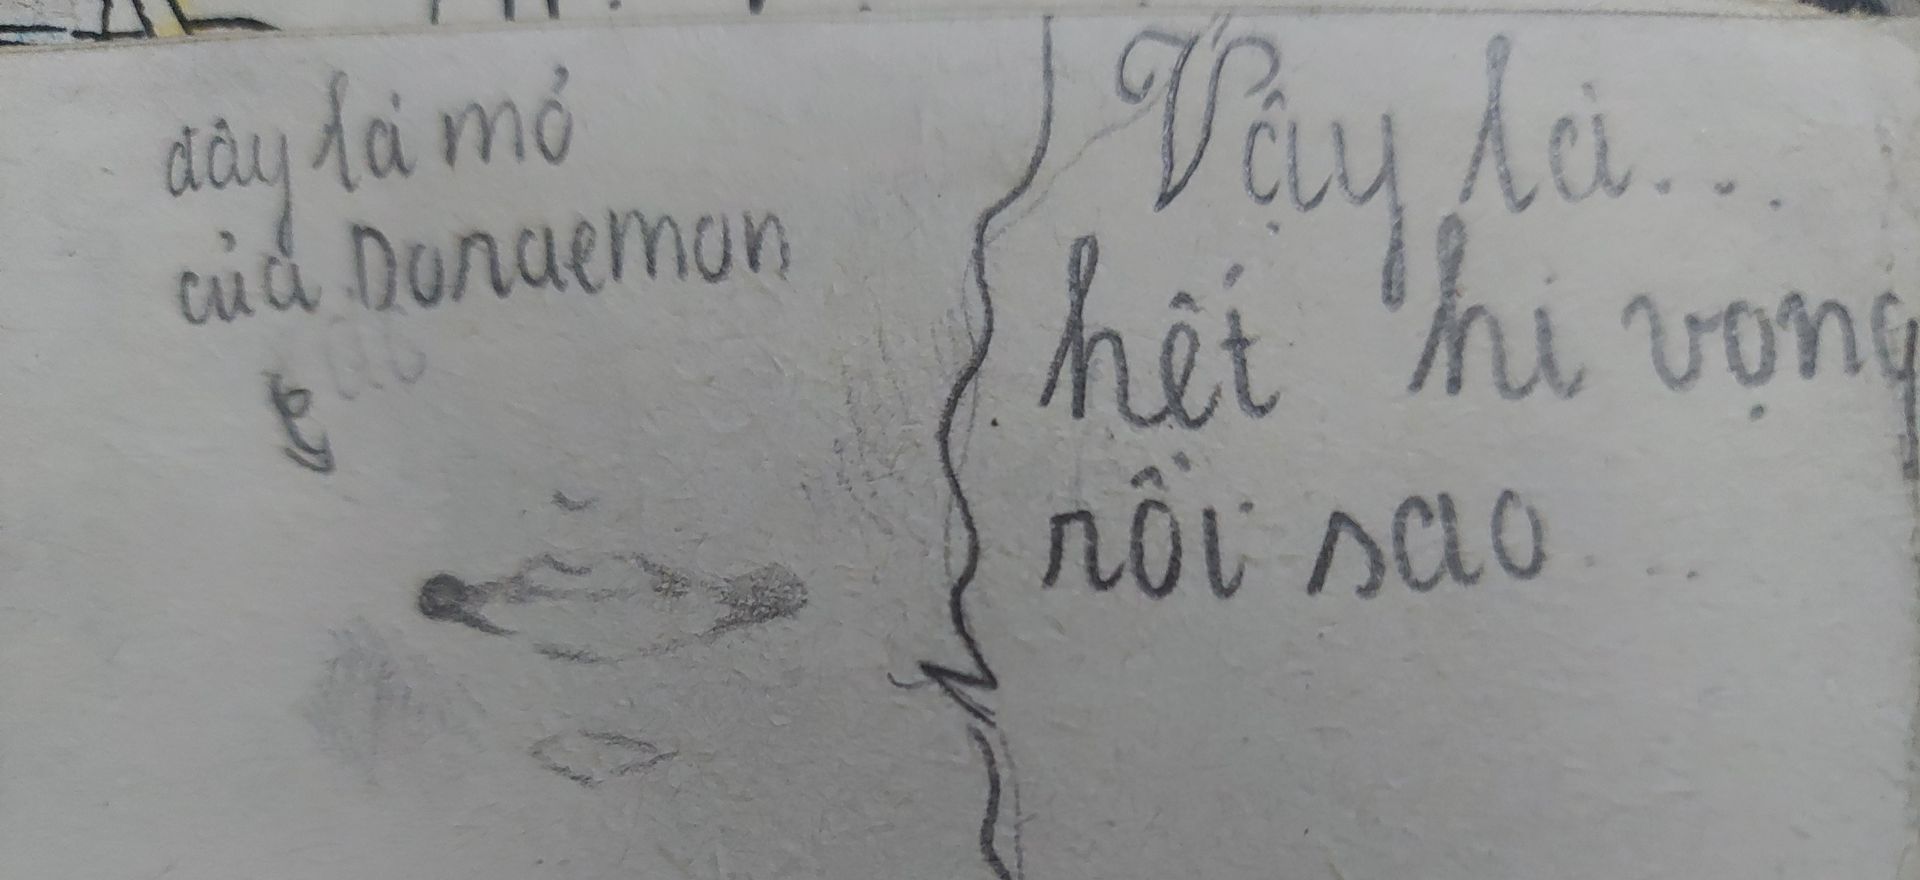 đây là mỏ
của Doraemon
Vậy là...
hết hi vọng
rồi sao...